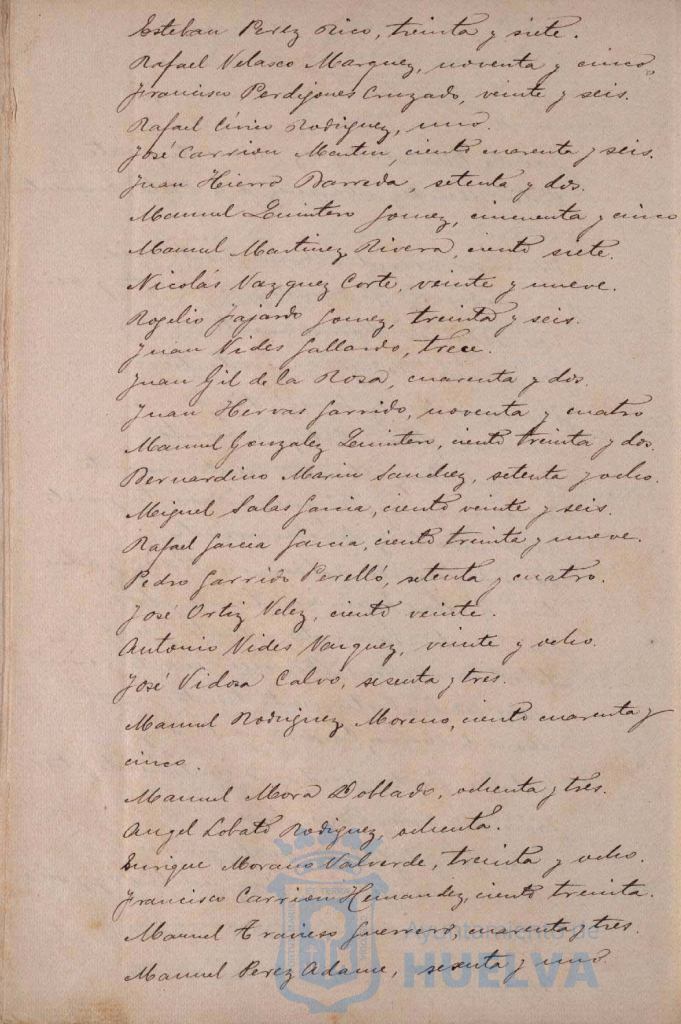 Esteban Perez Rico, treinta y siete.
Rafael Velasco Marquez, noventa y cinco.
Francisco Perdigones Cruzado, veinte y seis.
Rafael Cívico Rodiguez, uno.
José Carrion Martin, ciento cuarenta y seis.
Juan Hierro Barreda, setenta y dos.
Manuel Quintero Gomez, cincuenta y cinco
Manuel Martinez Rivera, ciento siete.
Nicolás Vazquez Corte, veinte y nueve.
Rogelio Fajardo Gomez, treinta y seis.
Juan Vides Gallardo, trece.
Juan Gil de la Rosa, cuarenta y dos.
Juan Hervas Garrido, noventa y cuatro
Manuel Gonzalez Quintero, ciento treinta y dos.
Bernardino Marin Sanchez, setenta y ocho.
Miguel Salas Garcia, ciento veinte y seis.
Rafael Garcia Garcia, ciento treinta y nueve.
Pedro Garrido Perelló, setenta y cuatro.
José Ortiz Velez, ciento veinte.
Antonio Vides Vazquez, veinte y ocho.
José Vidosa Calvo, sesenta y tres.
Manuel Rodriguez Moreno, ciento cuarenta y
cinco.
Manuel Mora Doblado, ochenta y tres.
Angel Lobato Rodiguez, ochenta.
Enrique Morano Valverde, treinta y ocho.
Francisco Carrion Hernandez, ciento treinta.
Manuel Guerrero, cuarenta y tres.
Manuel Perez Adame, sesenta y uno.
Ayuntamiento de
HUELVA